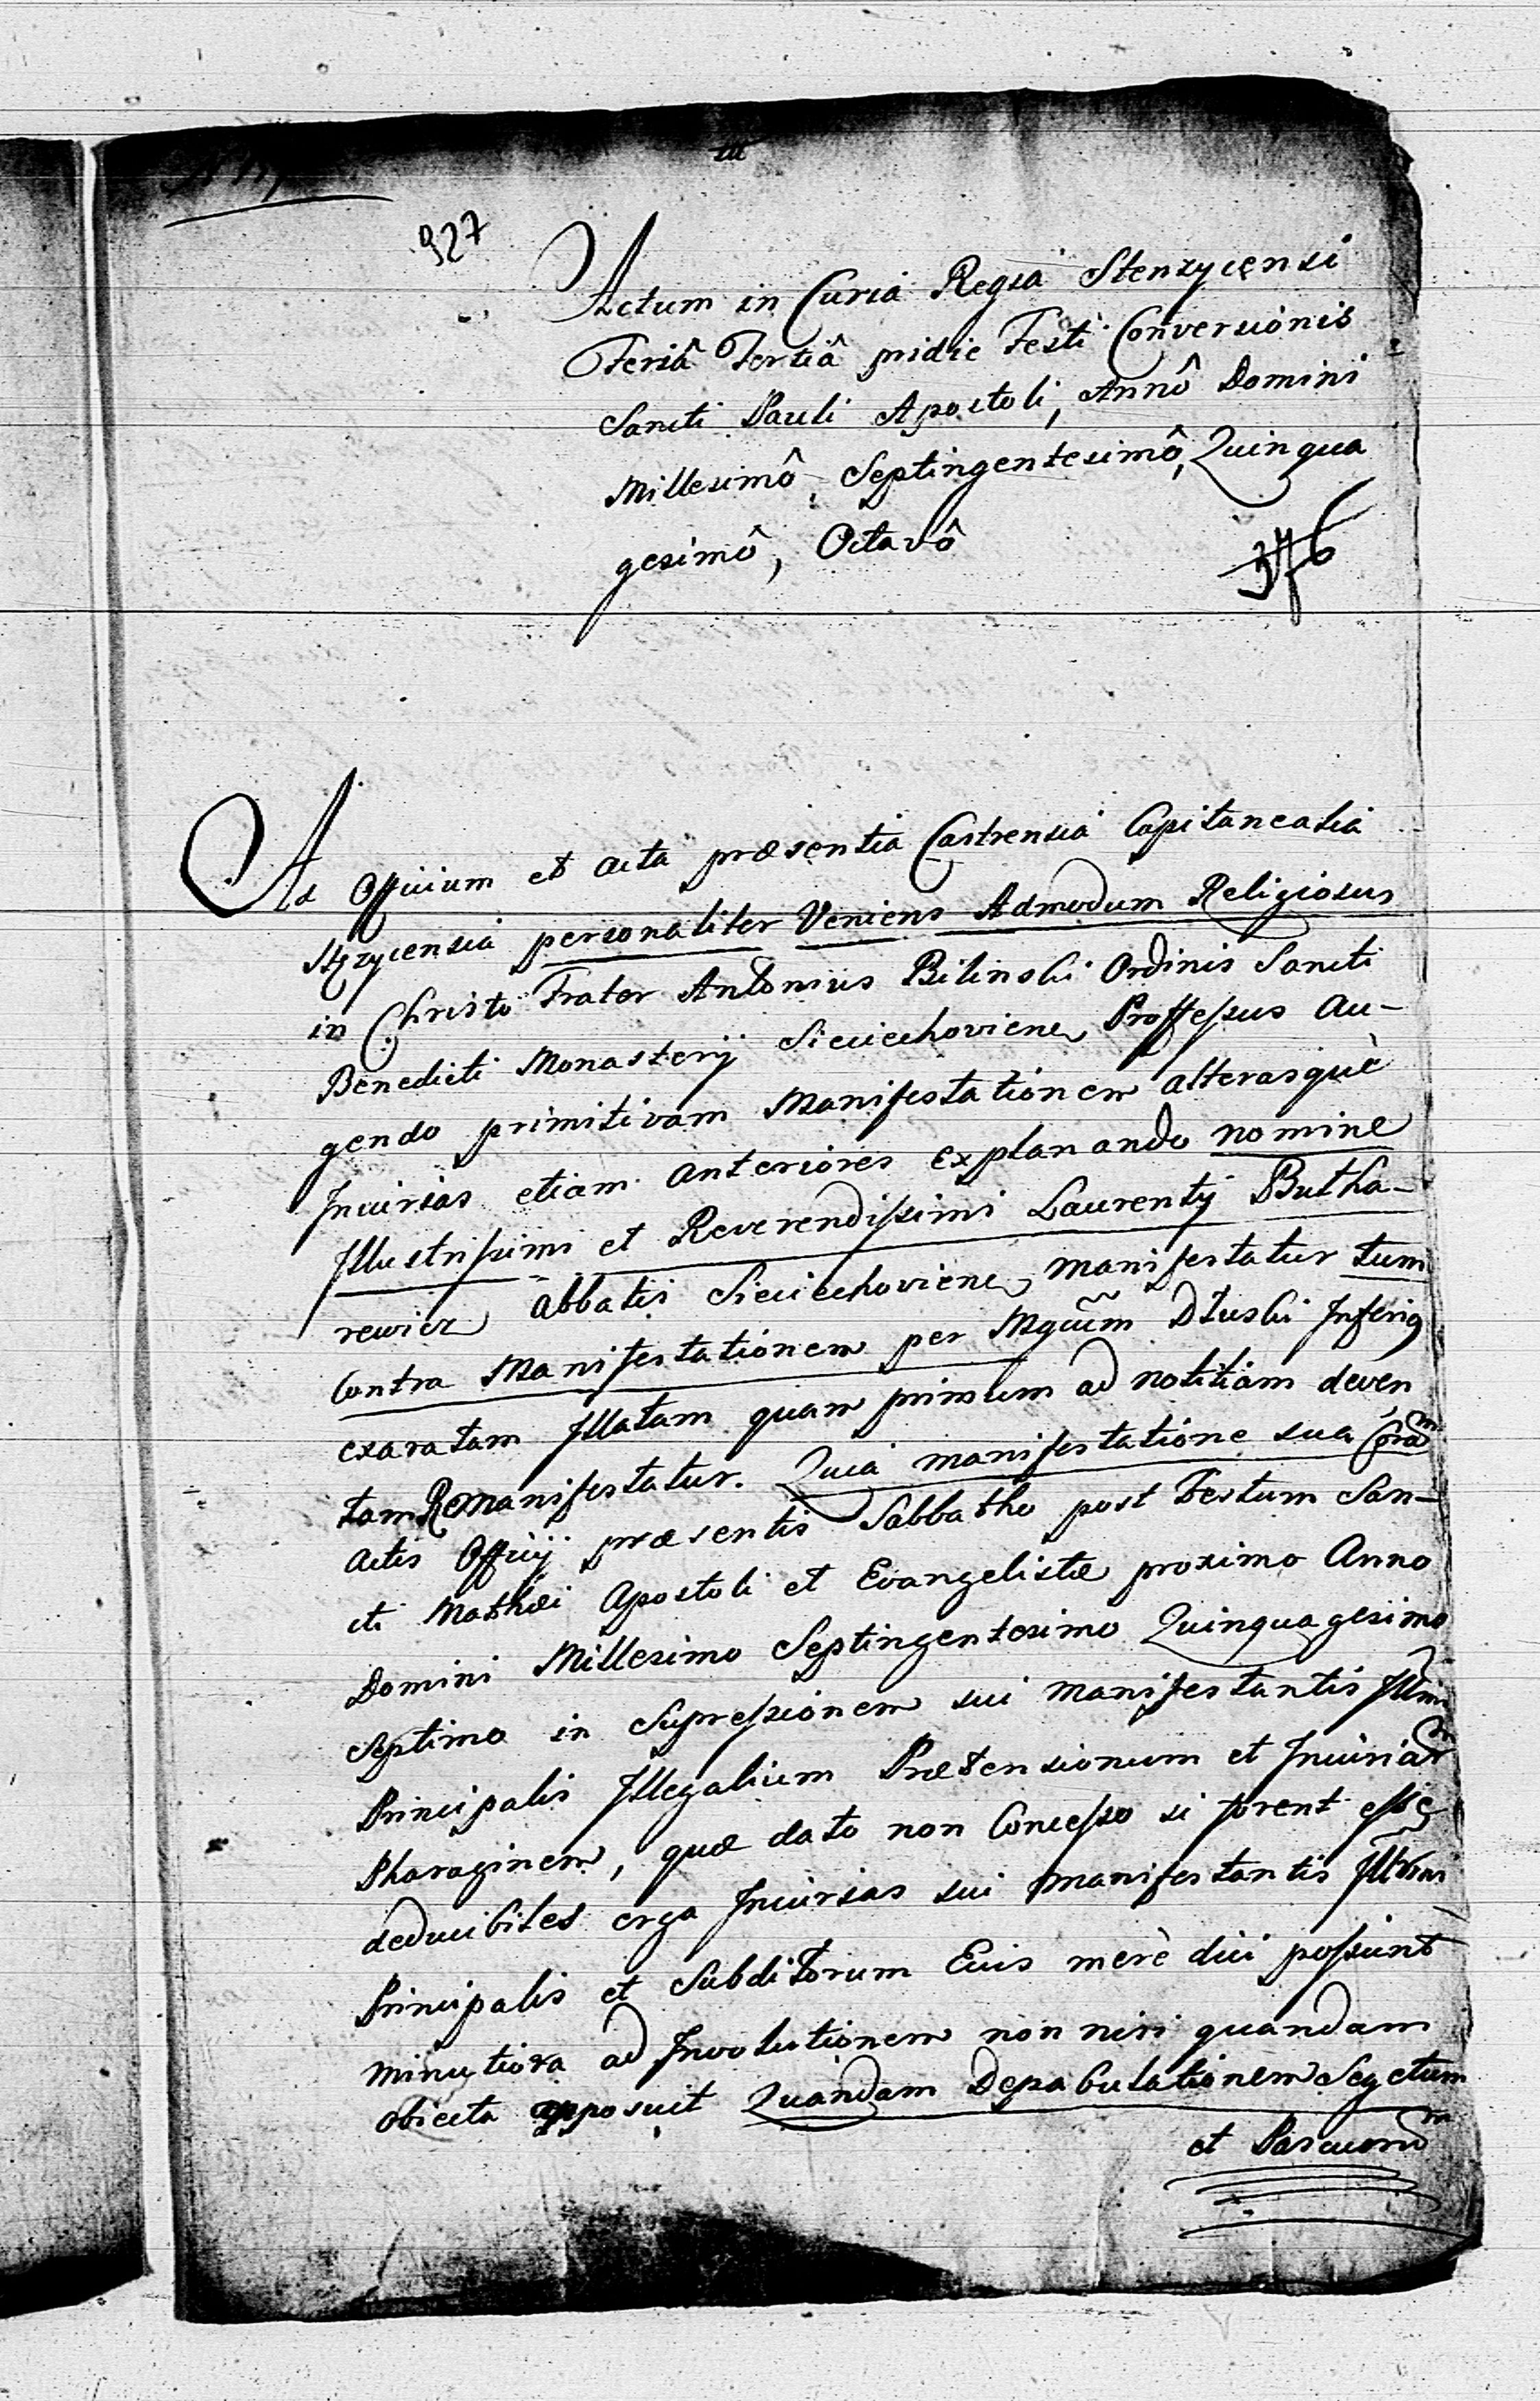 927
Actum in Curia Regia Stenzycensi
Feriâ Tertiâ pridie Festi Conversionis
Sancti Pauli Apostoli, Annô Domini
Millesimô, Septingentesimô, Quinqua
gesimô, Octavô
376
Ad Officium et Acta præsentia Castrensia Capitanealia
Stęzycensia personaliter Veniens Admodum Religiosus
in Christo Frater Antonius Bilinski Ordinis Sancti
Benedicti Monasterij Sieciechoviens Proffessus Au-
gendo primitivam Manifestationem alterasquè
Iniurias etiam anteriores explanando nomine
Illustrissimi et Reverendissimi Laurentij Butha-
rewicz Abbatis Sieciechoviens manifestatur tum
Contra Manifestationem per Mgcũm Dłuski Inferius
exaratam Illatam quam primum ad notitiam deven
tam Remanifestatur. Quia manifestatione sua Coram
Actis Officij præsentis Sabbatho post Festum San-
cti Mathæi Apostoli et Evangelistæ proximo Anno
Domini Millesimo Septingentesimo Quinquagesimo
Septimo in Supressionem sui Manifestantis Illmi
Principalis Illegalium Prætensionum et Iniuriarm
Pharaginem, quæ dato non Concesso si forent esse
deducibiles erga Iniurias sui manifestantis Illmi
Principalis et Subditorum Eius merè dici possunt
minutiora ad Involutionem non nisi quandam
obiecta apposuit Quandam Depabulationem Segetum
et Pascuorum